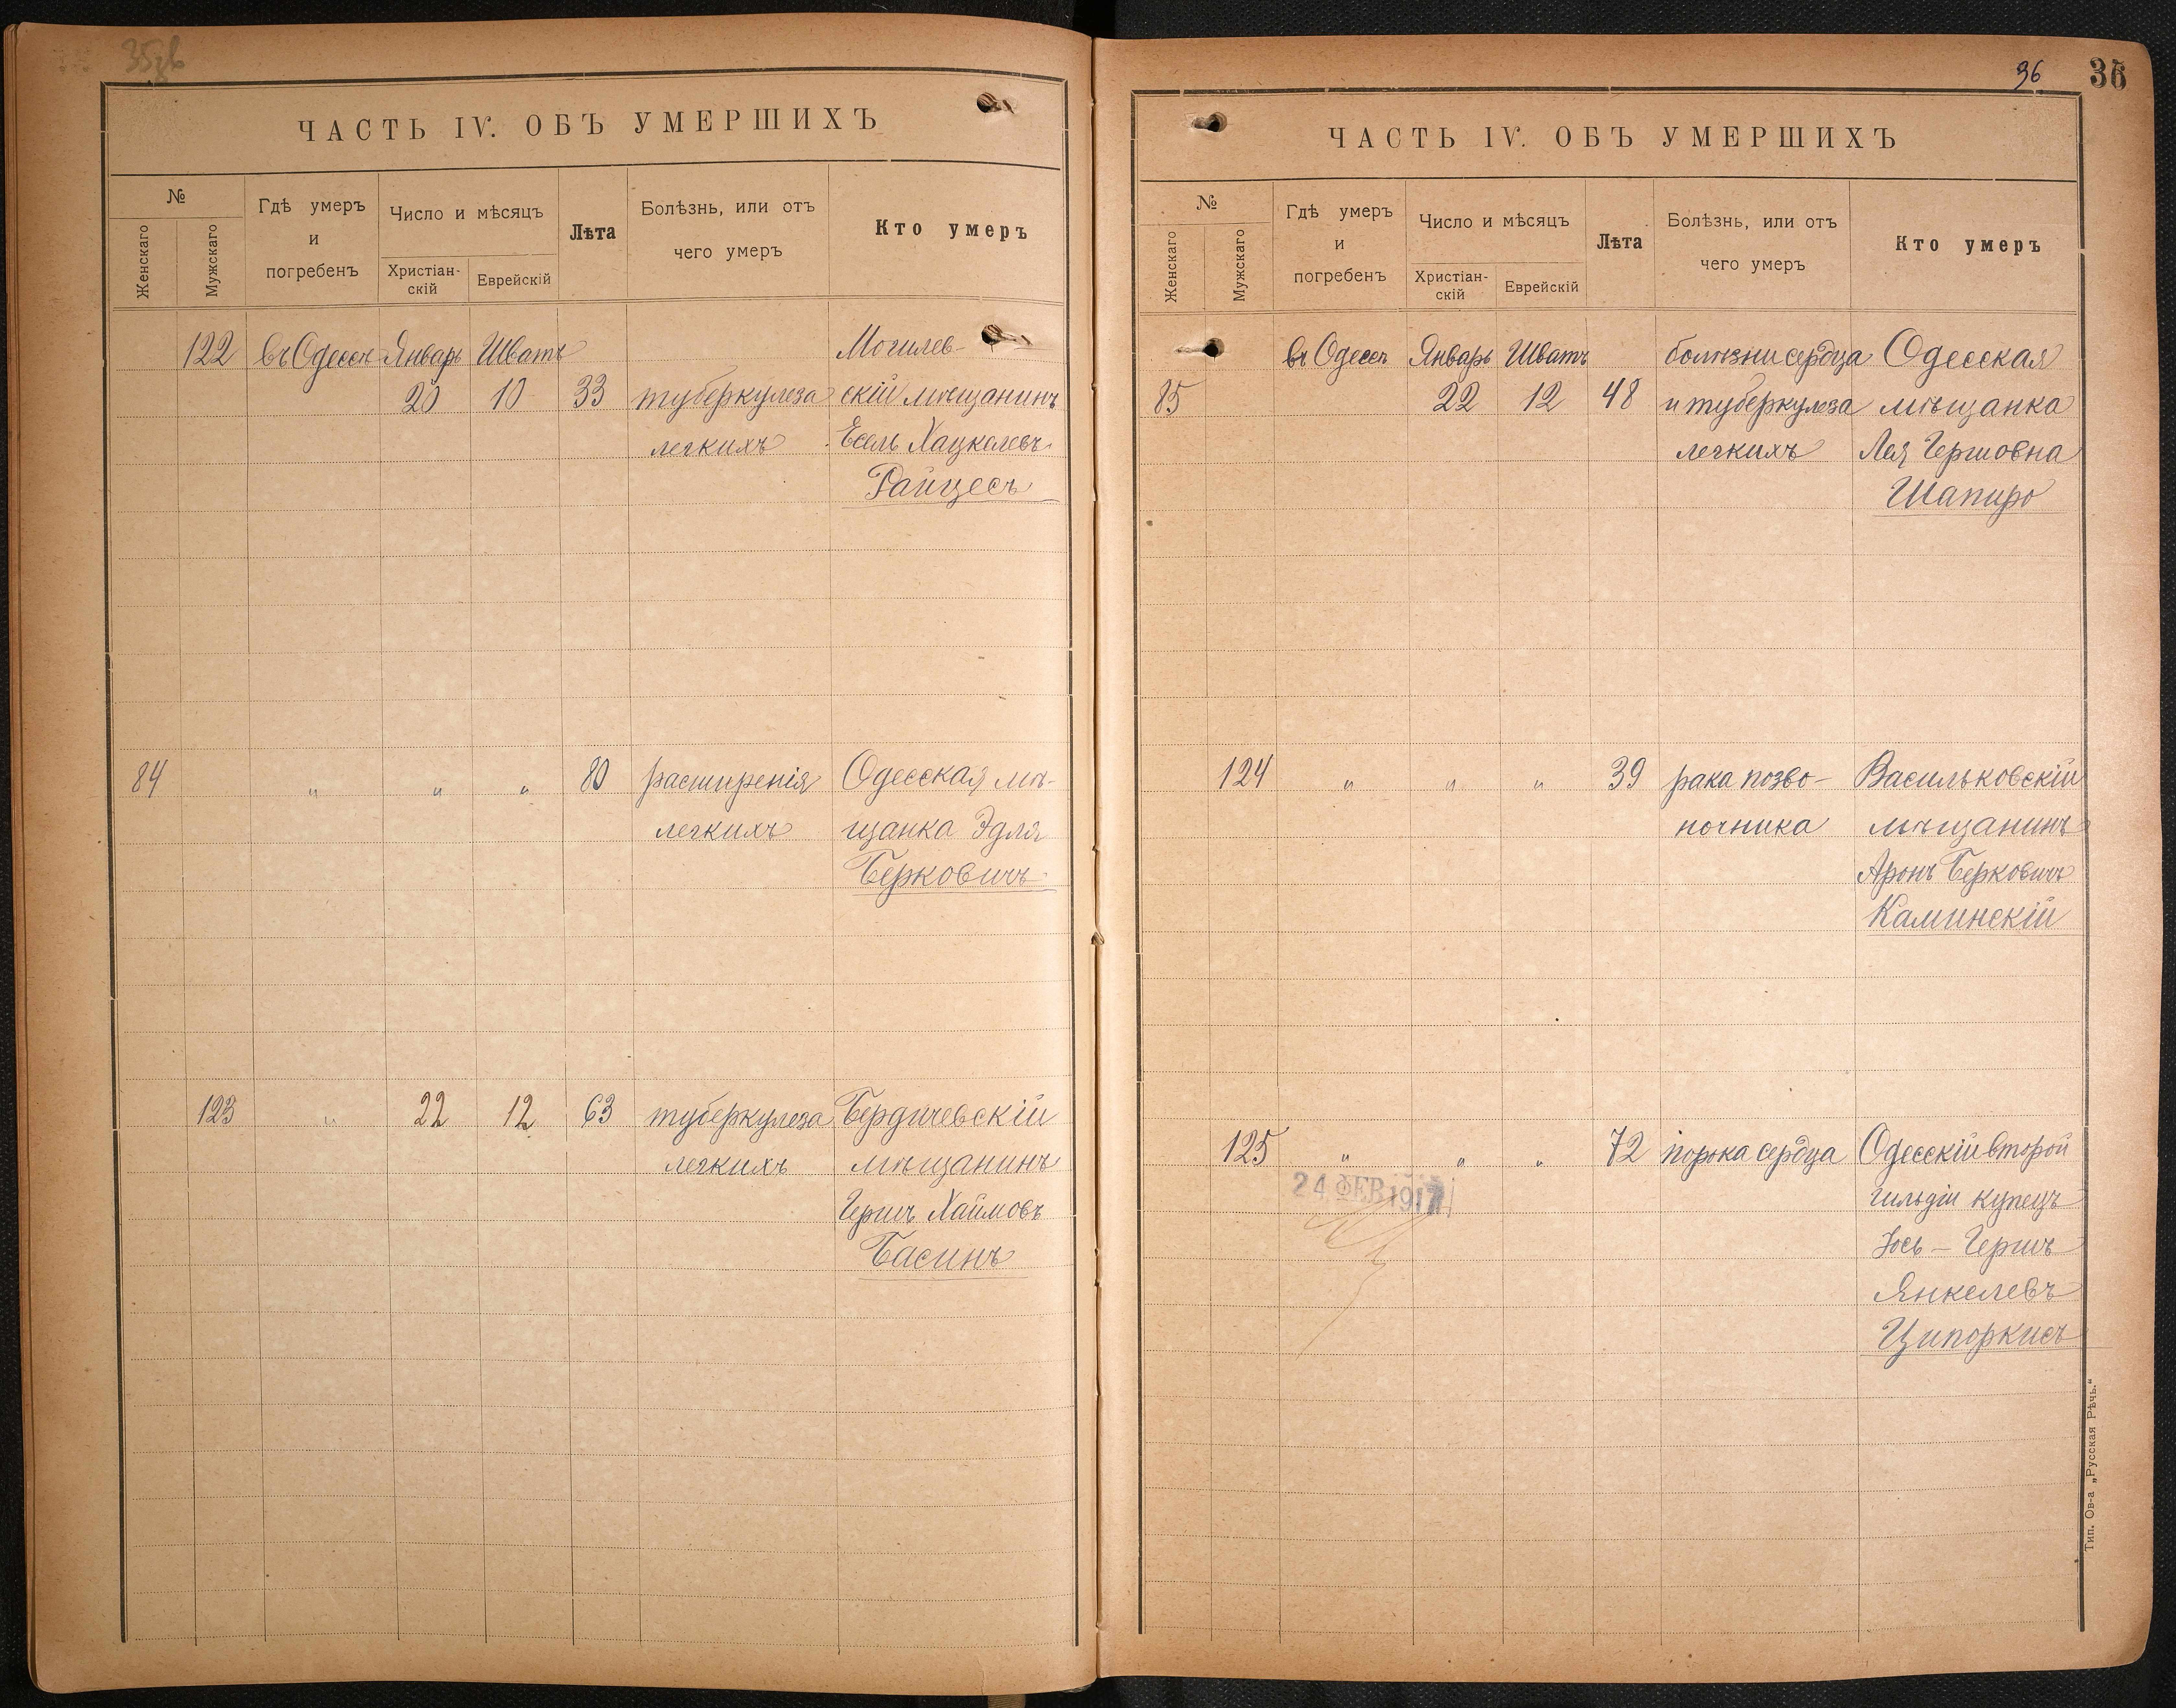 ЧАСТЬ IV. ОБЪ УМЕРШИХЪ
№
Женскаго
Мужскаго
Гдѣ умеръ
и
погребенъ
Число и мѣсяцъ
Христіан-
скій
Еврейскій
Лѣта
Болѣзнь, или отъ
чего умеръ
Кто умеръ
122 въ Одессѣ Январь Шватъ Могилев-
20 10 33 туберкулеза скій мѣщанинъ
легкихъ Есель Хацкелевъ
Райцесъ
84 " " " 80 расширенія Одесская мѣ-
легкихъ щанка Эдля
Берковичъ
123 " 22 12 63 туберкулеза Бердичевскій
легкихъ мѣщанинъ
Гершъ Хаимовъ
Басинъ
36 36
ЧАСТЬ IV. ОБЪ УМЕРШИХЪ
№
Женскаго
Мужскаго
Гдѣ умеръ
и
погребенъ
Число и мѣсяцъ
Христіан-
скій
Еврейскій
Лѣта
Болѣзнь, или отъ
чего умеръ
Кто умеръ
въ Одессѣ Январь Шватъ болѣзни сердца Одесская
85 22 12 48 и туберкулеза мѣщанка
легкихъ Лея Гершовна
Шапиро
124 " " " 39 рака позво- Васильковскій
ночника мѣщанинъ
Аронъ Берковичъ
Каминскій
125 " " " 72 порока сердца Одесскій второй
24 ФЕВ 1917 гильдіи купецъ
Іось-Гершъ
Янкелевъ
Ципоркисъ
Тип. Ов-а „Русская Рѣчь.“